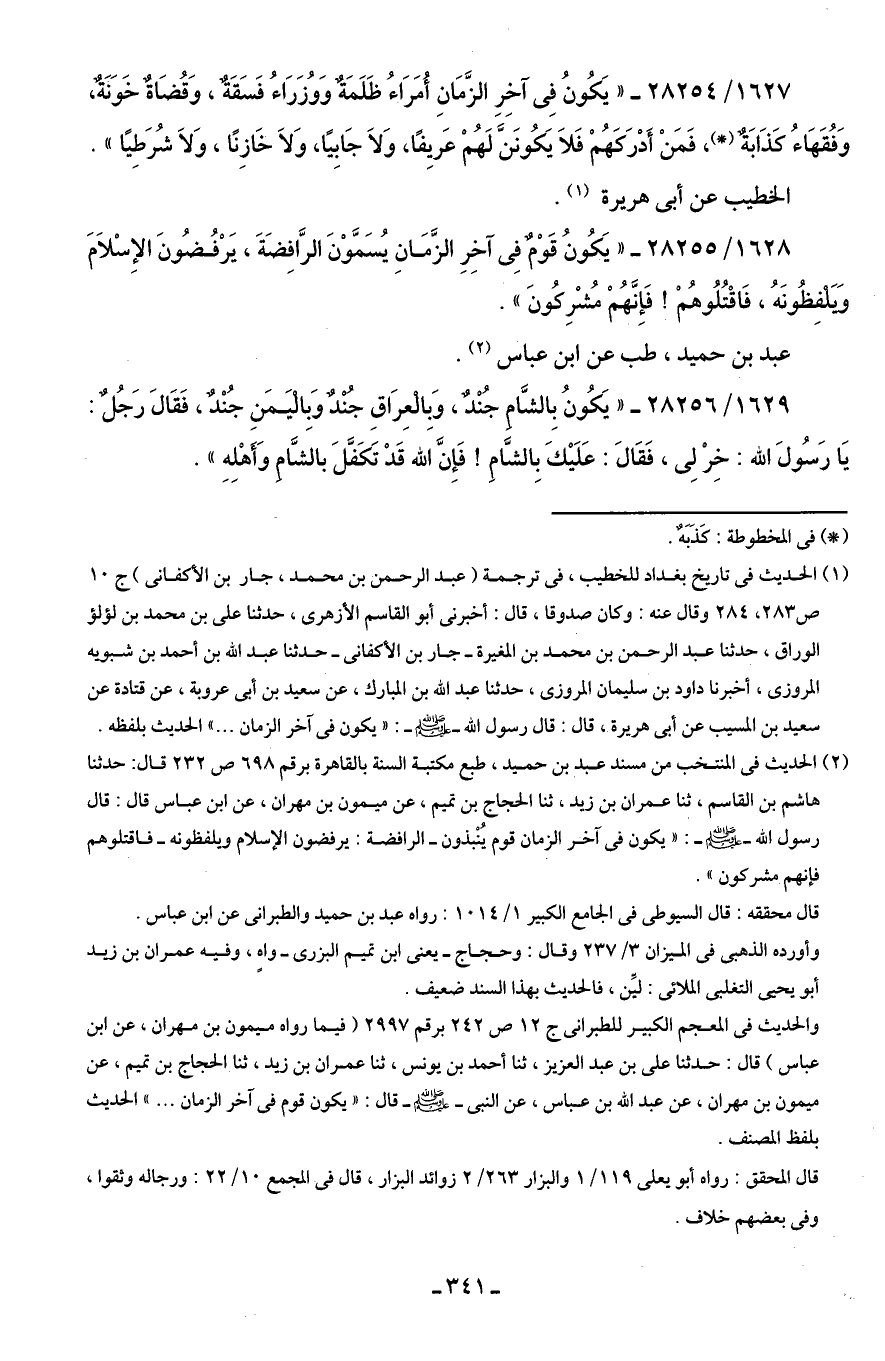 ١٦٢٧/ ٢٨٢٥٤ ـ « يَكُونُ فِى آخِرِ الزَّمَانِ أُمَرَاءُ ظَلَمَةٌ وَوُزَرَاءُ فَسَقَةٌ ، وَقُضَاةٌ خَوَنَةٌ،
وَفُقَهَاءُ كَذَابَةٌ (*)، فَمَنْ أَدْرَكَهُمْ فَلاَ يَكُونَنَّ لَهُمْ عَرِيفًا، وَلاَ جَابِيًا، وَلاَ خَازِنًا ، وَلاَ شُرَطِيًا » .
الخطيب عن أبى هريرة (١) .
١٦٢٨/ ٢٨٢٥٥ ـ « يَكُونُ قَوْمٌ فِى آخِرِ الزَّمَـانِ يُسَمَّوْنَ الرَّافِضَةَ ، يَرْفُـضُونَ الإِسْلاَمَ
وَيَلْفِظُونَهُ ، فَاقْتُلُوهُمْ ! فَإِنَّهُمْ مُشْرِكُونَ » .
عبد بن حميد ، طب عن ابن عباس (٢) .
١٦٢٩/ ٢٨٢٥٦ ـ « يَكُونُ بِالشَّامِ جُنْدٌ، وَبِالْعِرَاقِ جُنْدٌ وَبِالْيَـمَنِ جُنْدٌ ، فَقَالَ رَجُلٌ :
يَا رَسُولَ الله : خِرْ لِى ، فَقَالَ : عَلَيْكَ بِالشَّامِ ! فَإِنَّ الله قَدْ تَكَفَّلَ بِالشَّامِ وَأَهْلِهِ » .
(*) فى المخطوطة : كَذَبَةٌ .
(١) الحـديث فى تاريخ بغداد للخطيب ، فى ترجمـة ( عبـد الرحـمن بن محـمـد ، جـار بن الأكفـانى ) ج ١٠
ص٢٨٣، ٢٨٤ وقال عنه : وكان صدوقا ، قال : أخبرنى أبو القاسم الأزهرى ، حدثنا على بن محمد بن لؤلؤ
الوراق ، حدثنا عـبد الرحـمن بن محـمـد بن المغيرة ـ جـار بن الأكفانى ـ حـدثنا عبـد الله بن أحمد بن شـبويه
المروزى ، أخبرنا داود بن سليمان المروزى ، حدثنا عبد الله بن المبارك ، عن سعيد بن أبى عروبة ، عن قتادة عن
سعيد بن المسيب عن أبى هريرة ، قال : قال رسول الله ـ ﷺ ـ : « يكون فى آخر الزمان ...» الحديث بلفظه .
(٢) الحديث فى المنتخب من مسند عـبد بن حمـيد ، طبع مكتبـة السنة بالقاهرة برقم ٦٩٨ ص ٢٣٢ قـال: حدثنا
هاشم بن القاسم ، ثنا عـمران بن زيد ، ثنا الحجاج بن تميم ، عن ميـمون بن مهران ، عن ابن عبـاس قال : قال
رسول الله ـ ﷺ ـ : « يكون فى آخـر الزمان قوم يُنْبَذون ـ الرافضـة : يرفضون الإسلام ويلفظونه ـ فـاقتلوهم
فإنهم مشركون » .
قال محققه : قال السيوطى فى الجامع الكبير ١/ ١٠١٤ : رواه عبد بن حميد والطبرانى عن ابن عباس .
وأورده الذهبى فى المـيزان ٣/ ٢٣٧ وقـال : وحـجـاج ـ يعنى ابن تميم البزرى ـ واهٍ ، وفـيـه عمـران بن زيـد
أبو يحيى التغلبى الملائى : ليِّن ، فالحديث بهذا السند ضعيف .
والحديث فى المـعجم الكبيـر للطبرانى ج ١٢ ص ٢٤٢ برقم ٢٩٩٧ ( فيـما رواه مـيمون بن مـهران ، عن ابن
عباس ) قال : حـدثنا على بن عبد العزيز ، ثنا أحمد بن يونس ، ثنا عمـران بن زيد ، ثنا الحجاج بن تميم ، عن
ميمون بن مهران ، عن عبد الله بن عبـاس ، عن النبى ـ ﷺ ـ قال : « يكون قوم فى آخر الزمان ... » الحديث
بلفظ المصنف .
قال المحقق : رواه أبو يعلى ١١٩/ ١ والبزار ٢٦٣/ ٢ زوائد البزار ، قال فى المجمع ١٠/ ٢٢ : ورجاله وثقوا ،
وفى بعضهم خلاف .
ـ ٣٤١ ـ